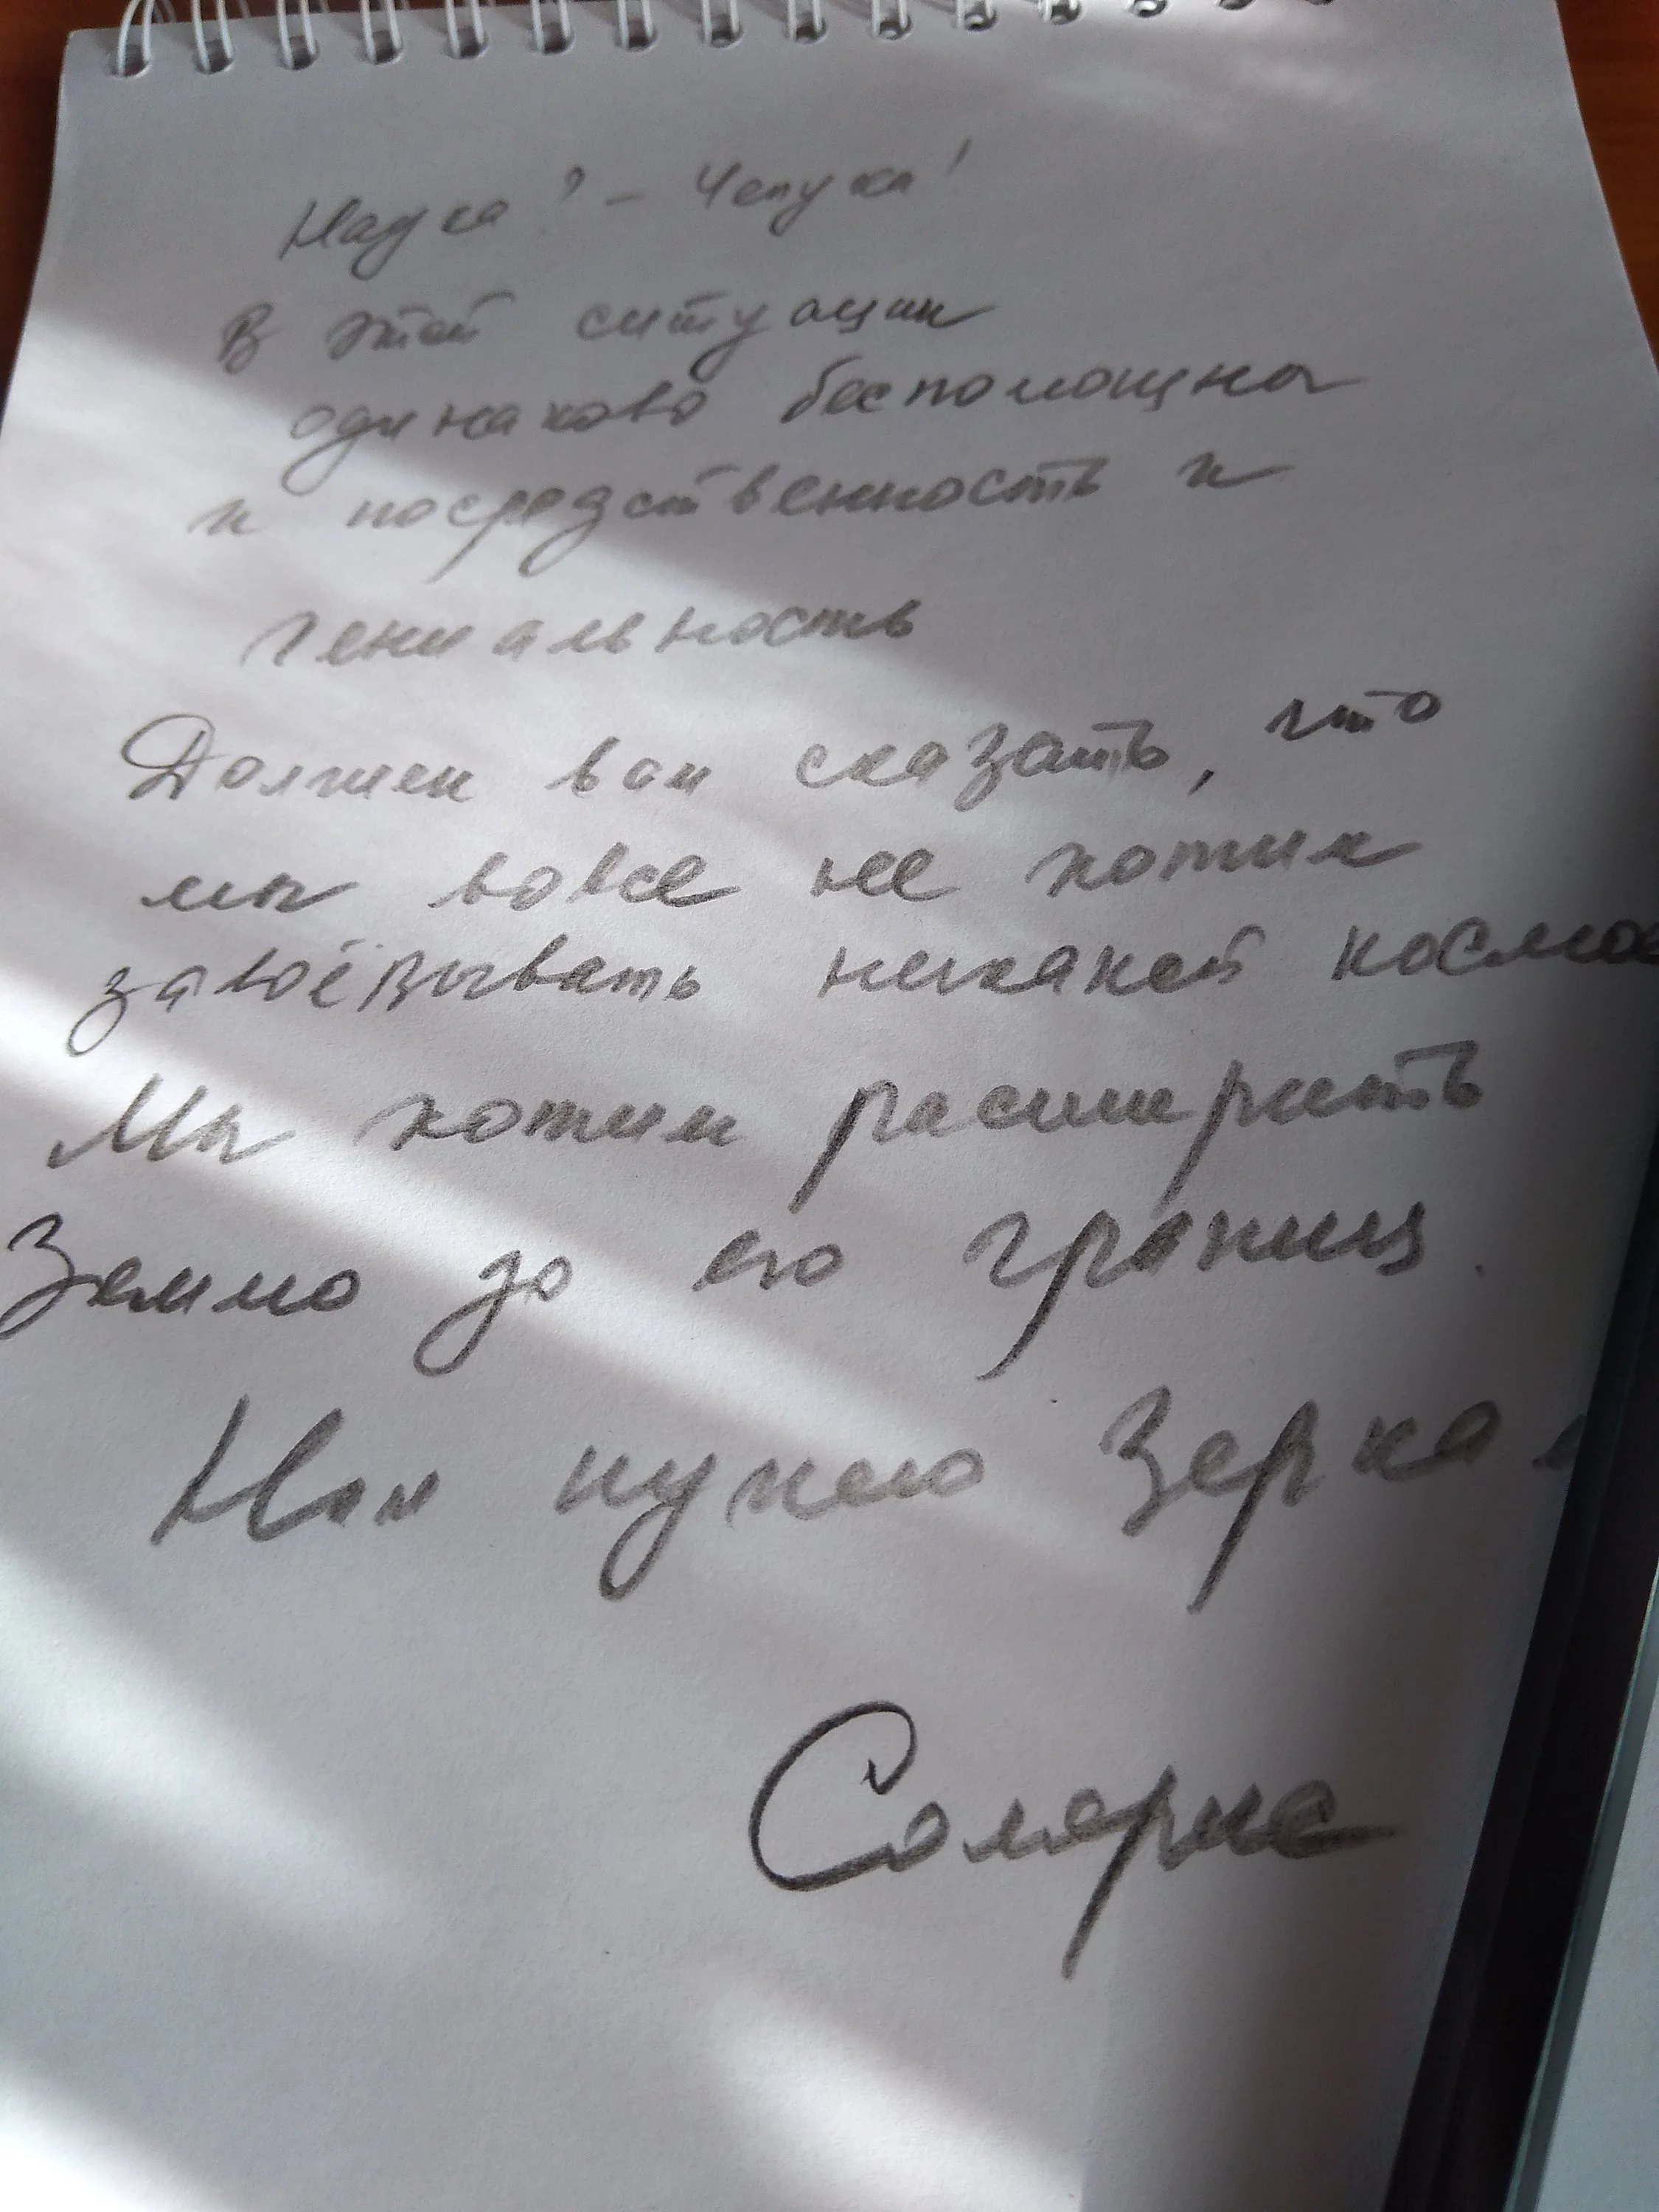 Наука? - Чепуха!
В этой ситуации
одинаково беспомощны
и посредственность и
гениальность
Должен вам сказать, что
мы вовсе не хотим
завоёвывать никакой космос
Мы хотим расширить
Землю до его границ.
Нам нужно зеркал
Солярис